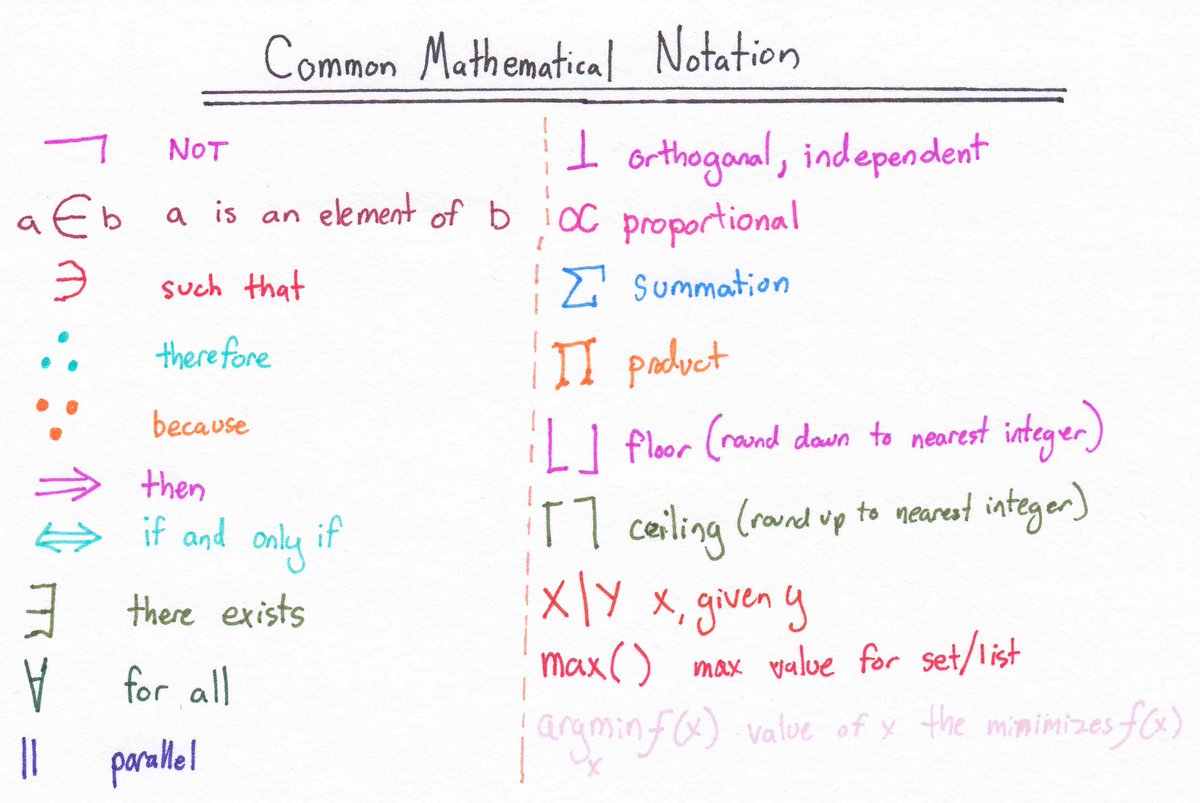 Common Mathematical Notation
¬ NOT
a ∈ b a is an element of b
∋ such that
∴ therefore
∵ because
⇒ then
⇔ if and only if
∃ there exists
∀ for all
|| parallel
⊥ orthoganal, independent
∝ proportional
Σ summation
∏ product
⌊ ⌋ floor (round down to nearest integer)
⌈ ⌉ ceiling (round up to nearest integer)
X|Y x, given y
max() max value for set/list
argmin f(x) value of x the minimizes f(x)
x